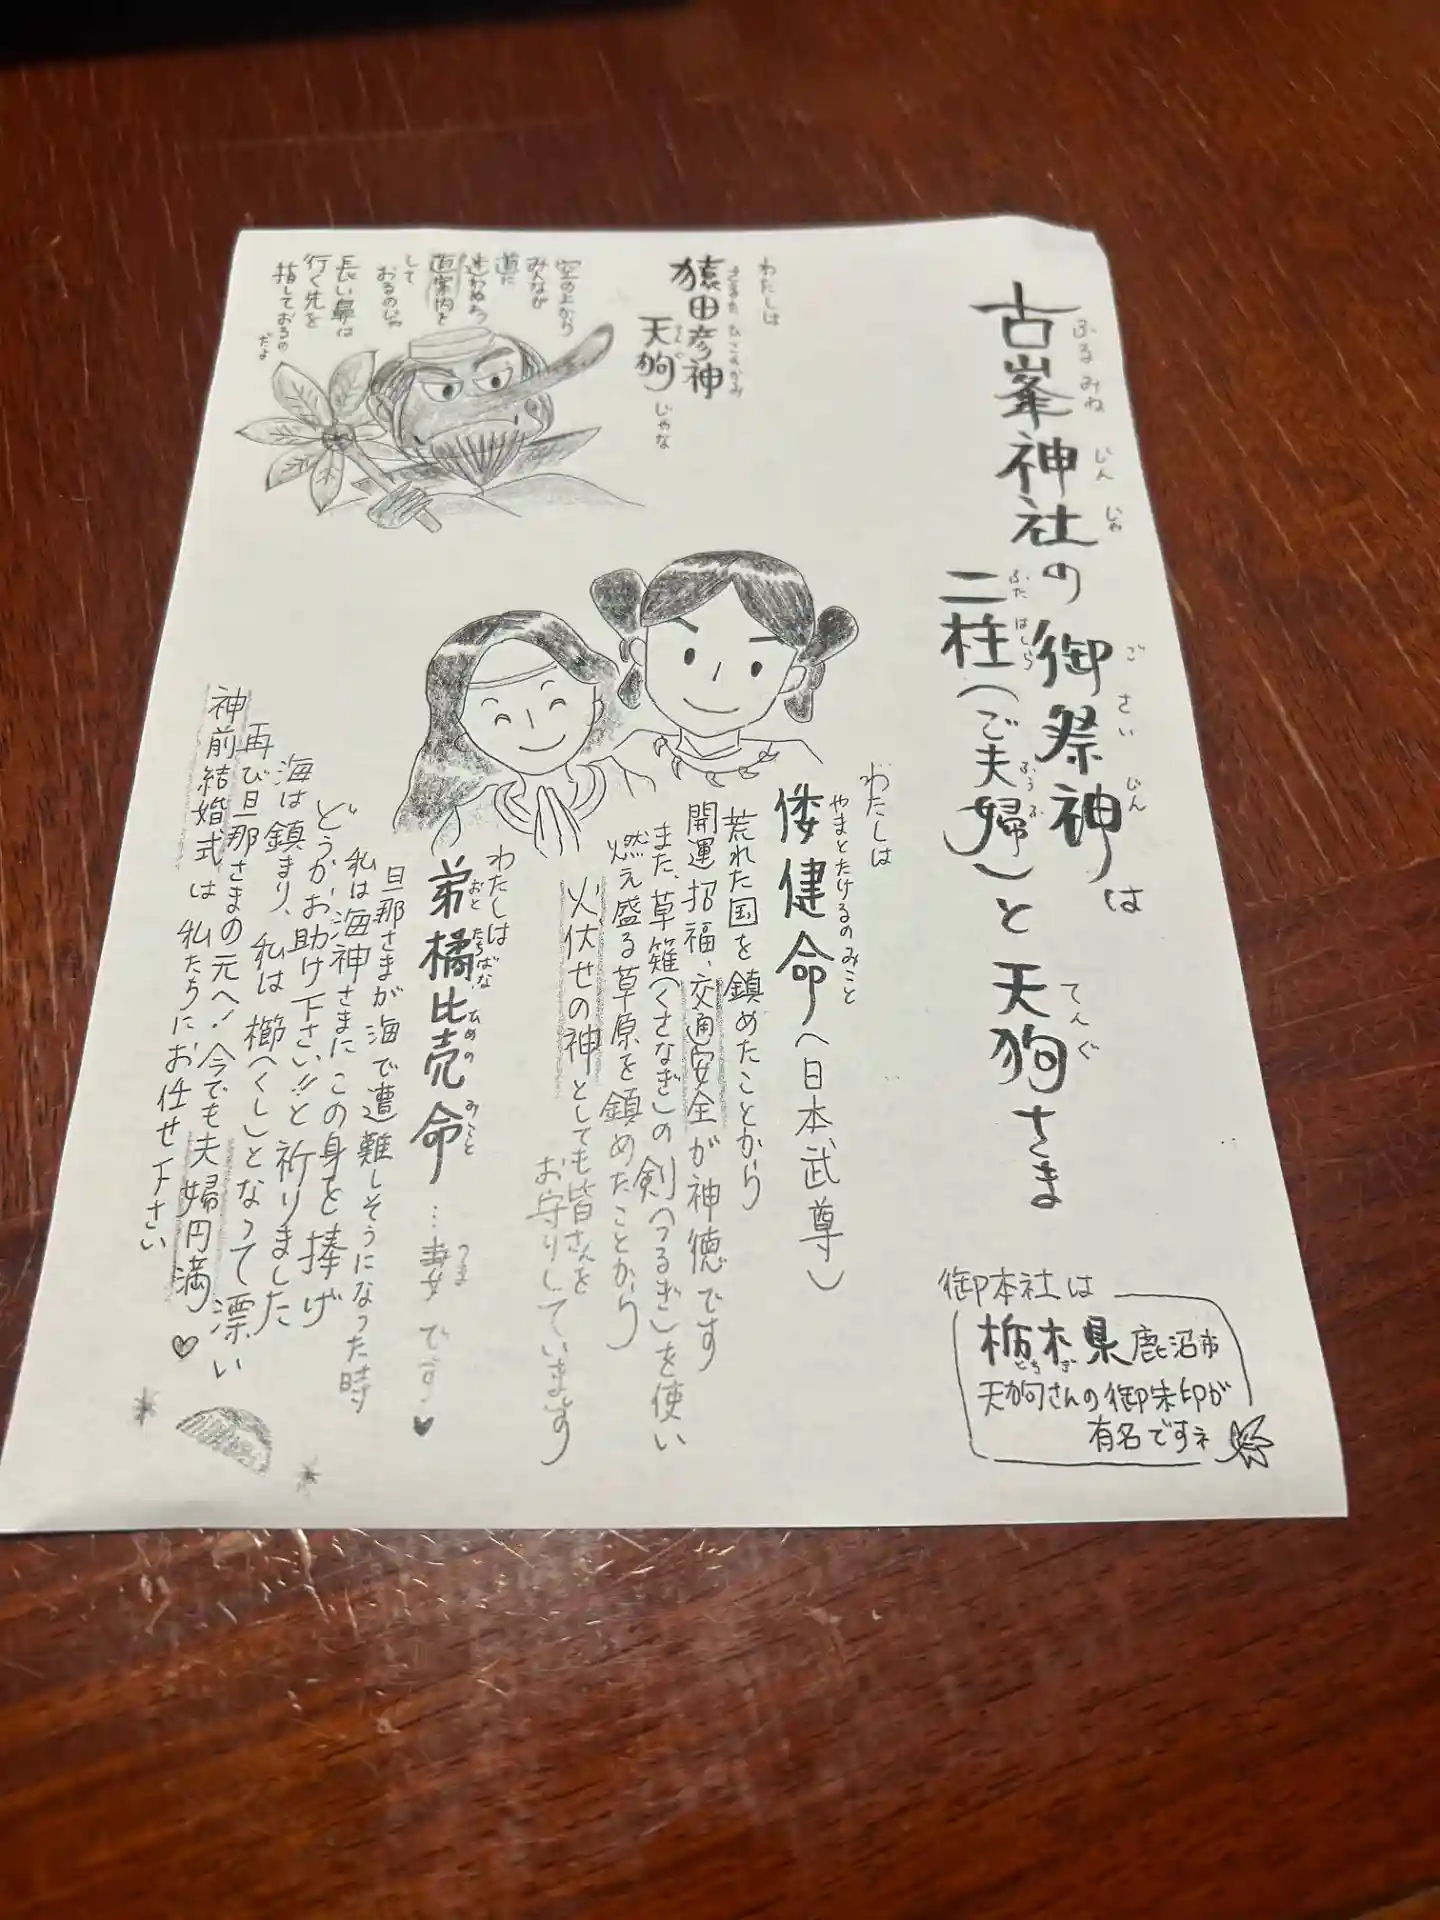 古峯神社の御祭神は
ふるみねじんじゃ ごさいじん
二柱(ご夫婦)と天狗さま
ふたはしら ふうふ てんぐ
御本社は
栃木県鹿沼市
とちぎ
天狗さんの御朱印が
有名ですネ
わたしは
猿田彦神
さるたひこのかみ
天狗じゃな
てんぐ
空の上から
みんなが
道に
迷わぬよう
道案内を
して
おるのじゃ
長い鼻は
行く先を
指しておるの
だよ
わたしは
倭健命(日本武尊)
やまとたけるのみこと
荒れた国を鎮めたことから
開運招福、交通安全が神徳です
また、草薙(くさなぎ)の剣(つるぎ)を使い
燃え盛る草原を鎮めたことから
火伏せの神としても皆さんを
お守りしています
わたしは
弟橘比売命…妻です♥
おとたちばなひめのみこと つま
旦那さまが海で遭難しそうになった時
私は海神さまにこの身を捧げ
どうかお助け下さい!!と祈りました
海は鎮まり、私は櫛(くし)となって漂い
再び旦那さまの元へ!今でも夫婦円満♡
神前結婚式は私たちにお任せ下さい